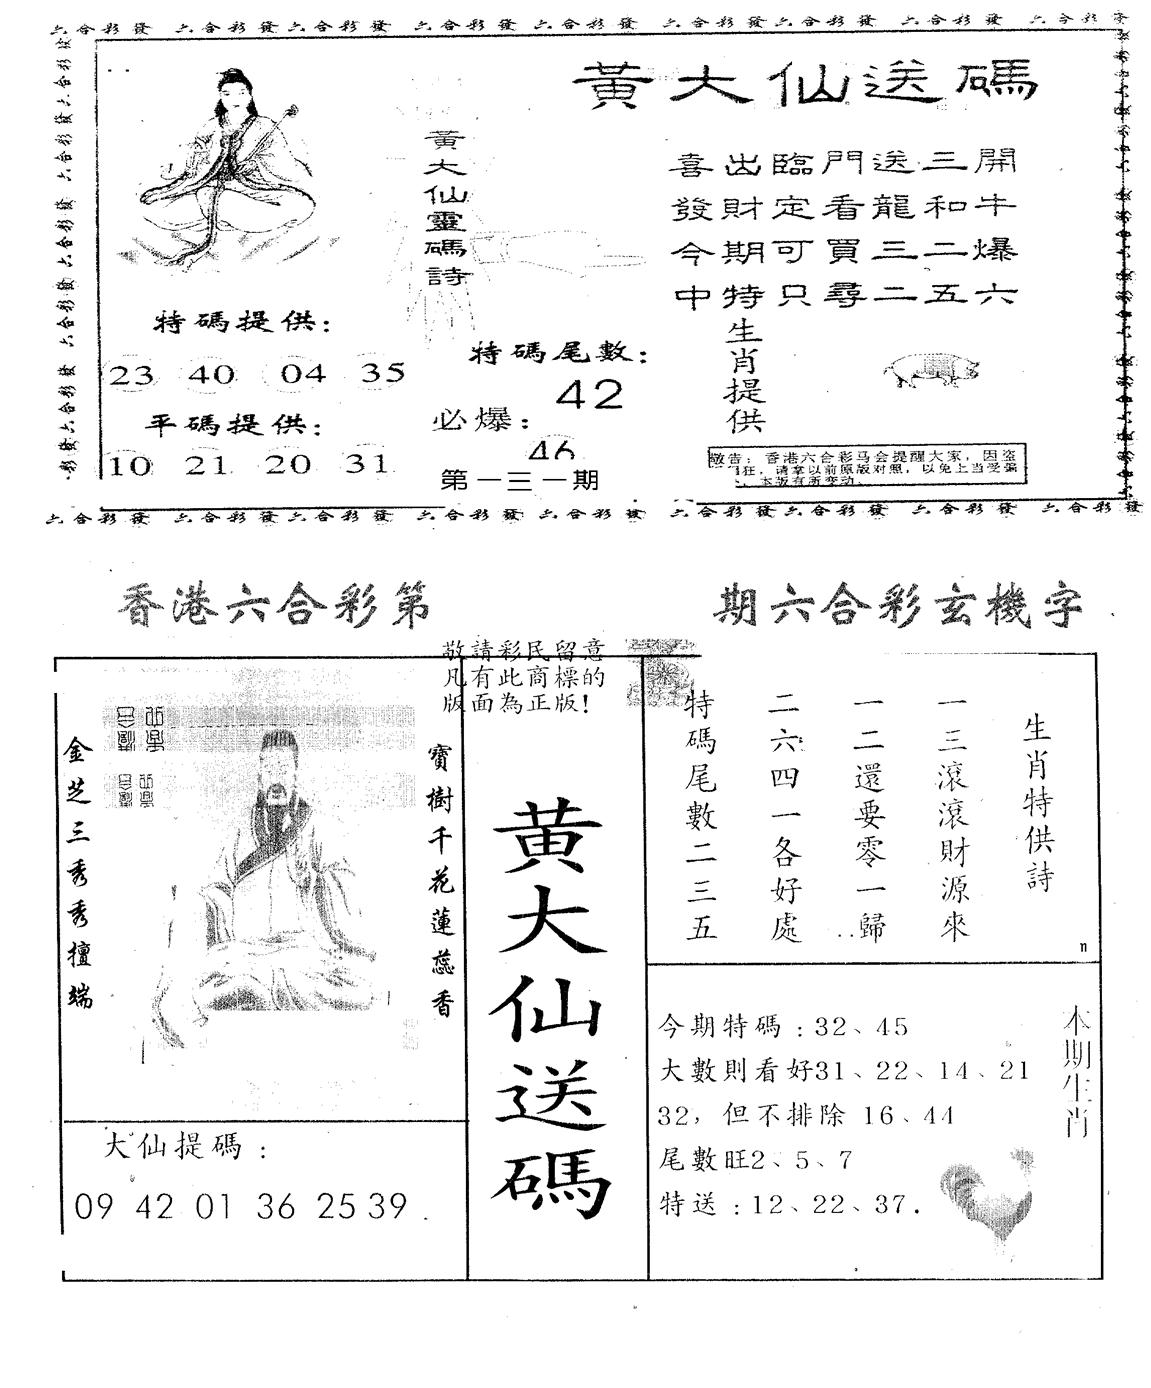 六合彩發 六合彩發六合彩發 六合彩發 六合彩發 六合彩發六合彩發 六合彩發 六合彩發
黃大仙送碼
黃大仙靈碼詩
喜出臨門送三開
發財定看龍和牛
今期可買三二爆
中特只尋二五六
特碼提供：
23 40 04 35
平碼提供：
10 21 20 31
特碼尾數：
42
必爆：
46
第一三一期
生肖提供
敬告：香港六合彩马会提醒大家，因盗
狂，请拿以前原版对照，以免上当受骗
本版有所变动
六合彩發 六合彩發六合彩發 六合彩發 六合彩發 六合彩發六合彩發 六合彩發 六合彩發
香港六合彩第 期六合彩玄機字
敬請彩民留意
凡有此商標的
版面為正版！
金芝三秀秀擅端
寶樹千花蓮蕊香
大仙提碼：
09 42 01 36 25 39
黃大仙送碼
生肖特供詩
一三滾滾財源來
一二還要零一歸
二六四一各好處
特碼尾數二三五
n
今期特碼：32、45
大數則看好31、22、14、21
32，但不排除 16、44
尾數旺2、5、7
特送：12、22、37.
本期生肖